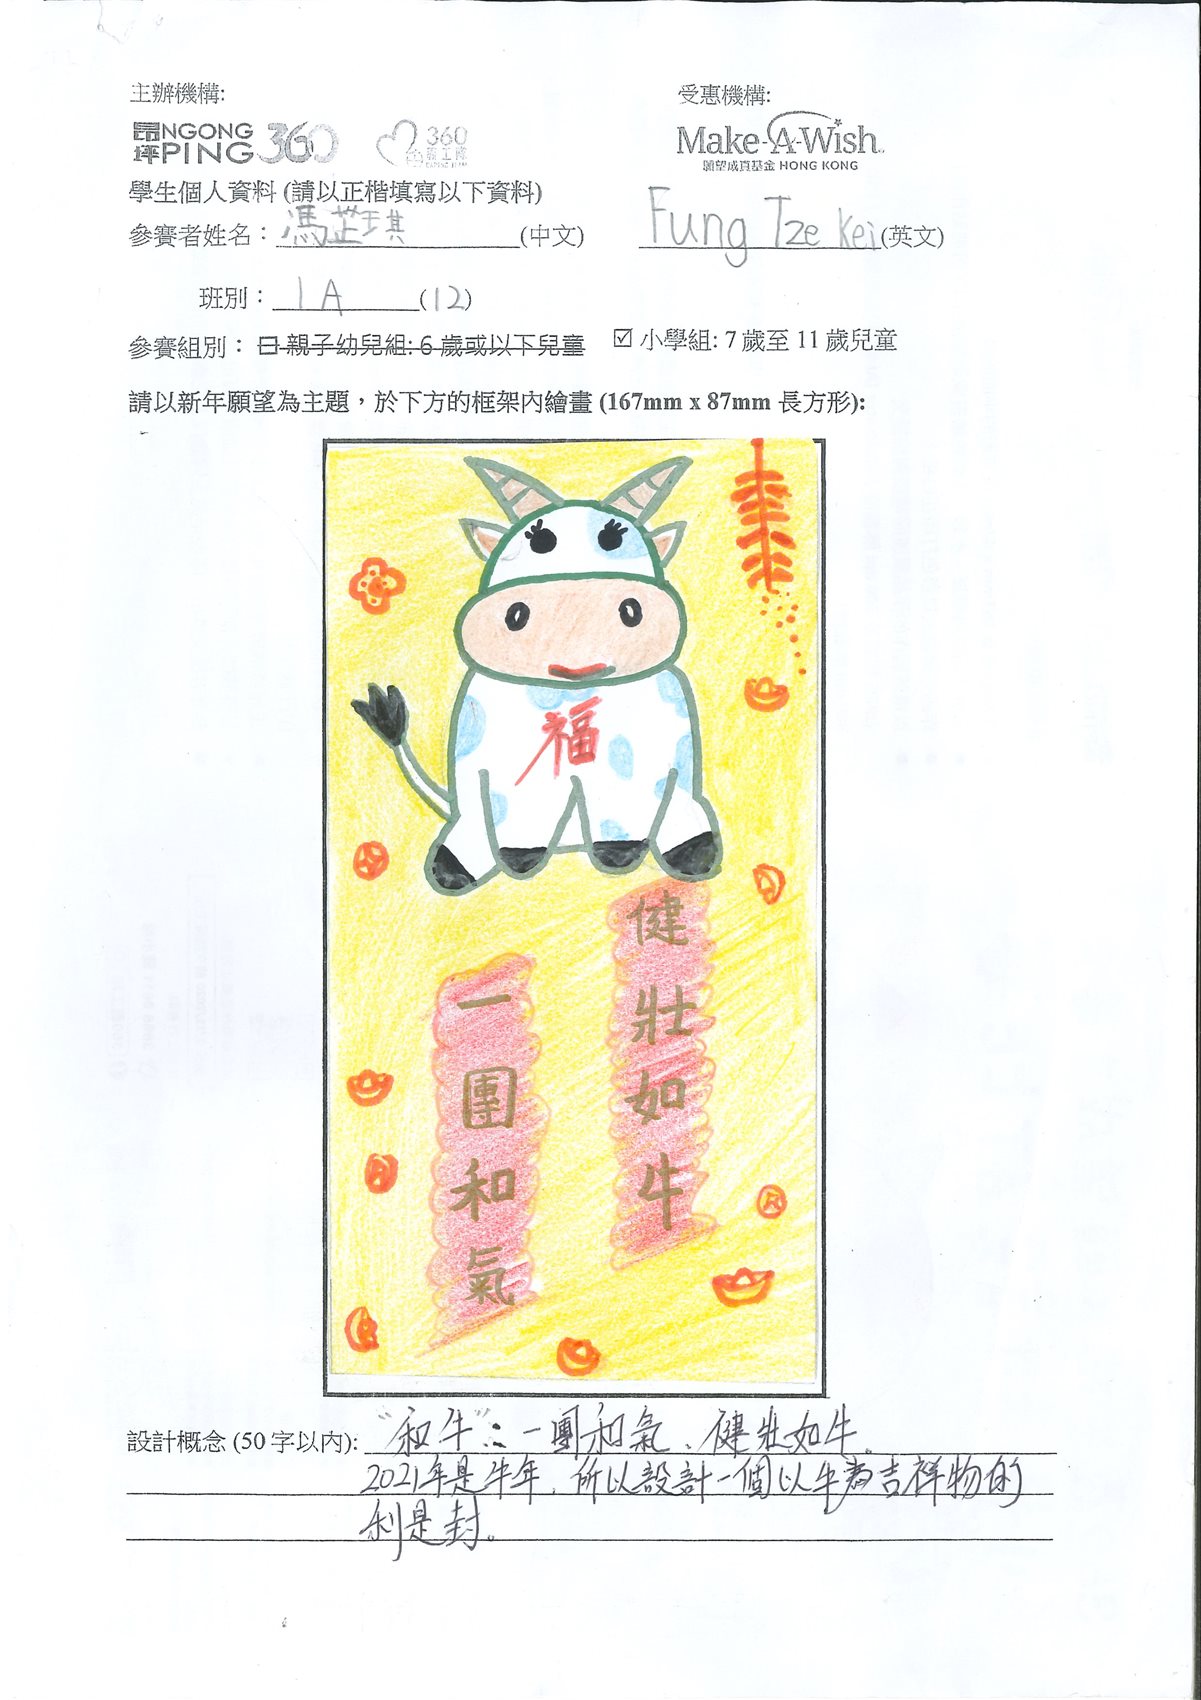 主辦機構:
受惠機構:
昂坪 NGONG PING 360
360
Make-A-Wish
願望成真基金 HONG KONG
學生個人資料 (請以正楷填寫以下資料)
參賽者姓名：馮芷琪(中文) Fung Tze Kei(英文)
班別：1A(12)
參賽組別： 口 親子幼兒組: 6 歲或以下兒童 ☑ 小學組: 7 歲至 11 歲兒童
請以新年願望為主題，於下方的框架內繪畫 (167mm x 87mm 長方形):
福
健壯如牛
一團和氣
設計概念 (50 字以內): "和牛"：一團和氣、健壯如牛。
2021年是牛年，所以設計一個以牛為吉祥物的
利是封。